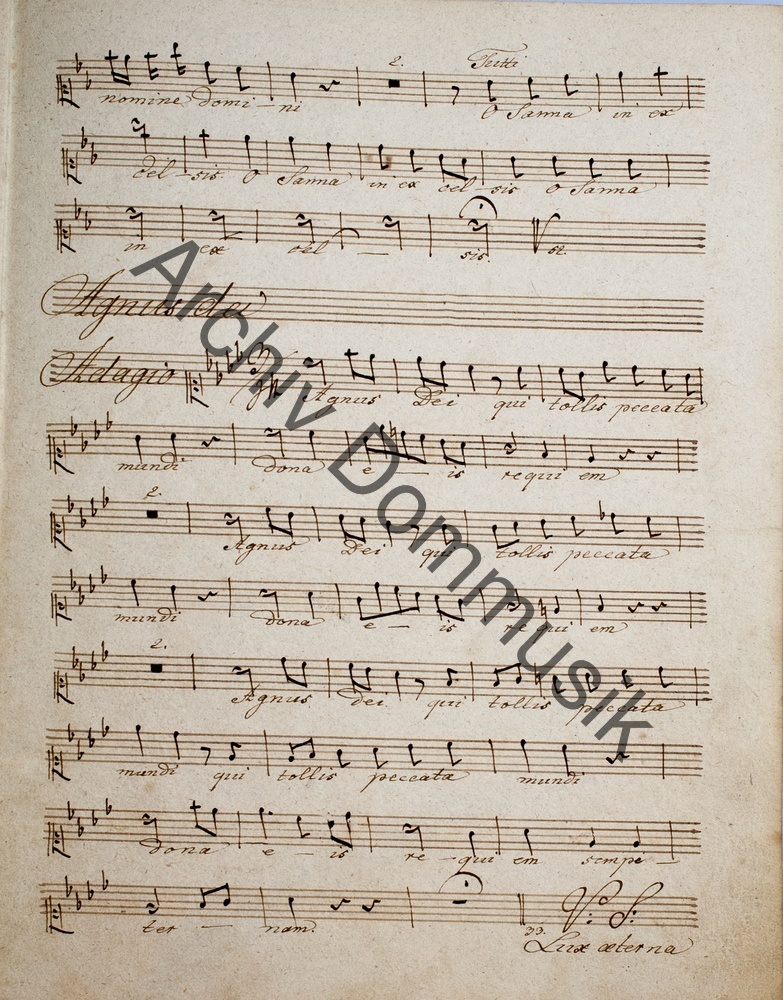 2. Tutti
nomine domi - ni O Sanna in ex
cel - sis O Sanna in ex cel - sis O Sanna
in ex cel - sis.
Agnus dei
Adagio Agnus Dei qui tollis peccata
mundi dona e - is requi em
2.
Agnus Dei qui tollis peccata
mundi dona e - is re qui em
2.
Agnus Dei qui tollis peccata
mundi qui tollis peccata mundi
dona e - is re - qui em sempi -
ter - nam. V: S:
Lux æterna
Archiv Dommusik